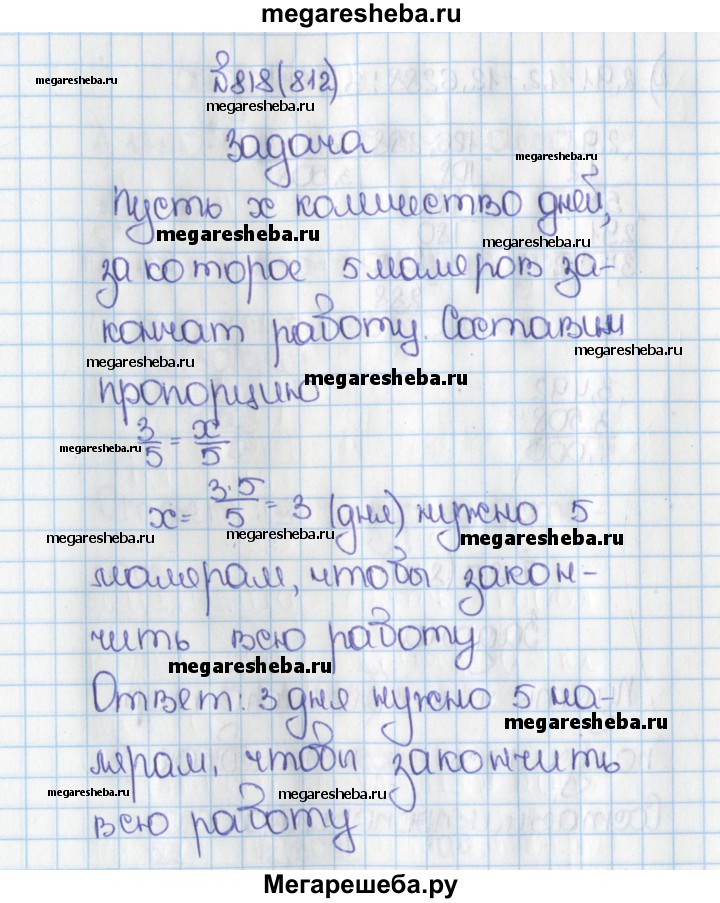 megaresheba.ru
№818(812)
megaresheba.ru
megaresheba.ru
Задача
megaresheba.ru
Пусть x количество дней,
megaresheba.ru
megaresheba.ru
за которое 5 маляров за-
кончат работу. Составим
megaresheba.ru
megaresheba.ru
пропорцию
megaresheba.ru
3/5 = x/5
megaresheba.ru
x = 3·5/5 = 3 (дня) нужно 5
megaresheba.ru
megaresheba.ru
megaresheba.ru
малерам, чтобы закон-
чить всю работу
megaresheba.ru
Ответ: 3 дня нужно 5 ма-
megaresheba.ru
лярам, чтобы закончить
megaresheba.ru
megaresheba.ru
всю работу
Мегарешеба.ру